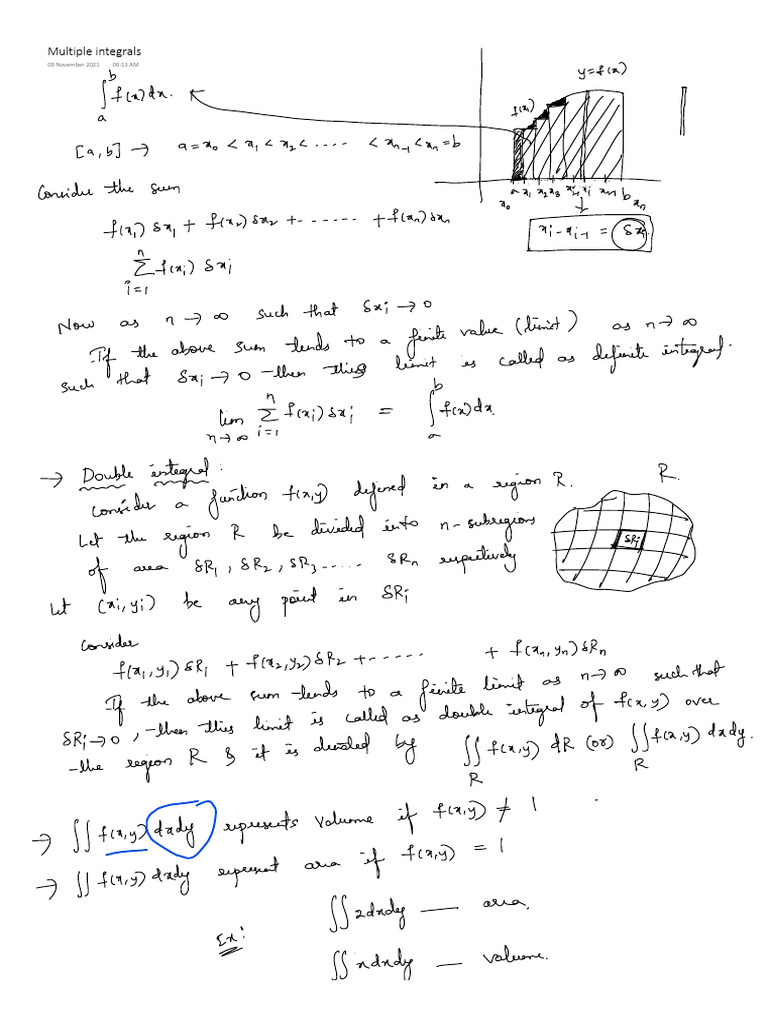 Multiple integrals
09 November 2021 09:13 AM
∫_a^b f(x) dx.
y = f(x)
f(x_i)
[a, b] → a = x_0 < x_1 < x_2 < ..... < x_{n-1} < x_n = b
a x_1 x_2 x_3 x_{i-1} x_i x_{n-1} b
x_0 x_n
x_i - x_{i-1} = δx_i
Consider the sum
f(x_1) δx_1 + f(x_2) δx_2 + ...... + f(x_n) δx_n
∑_{i=1}^n f(x_i) δx_i
Now as n → ∞ such that δx_i → 0
If the above sum tends to a finite value (limit) as n → ∞
such that δx_i → 0 then this limit is called as definite integral.
lim_{n→∞} ∑_{i=1}^n f(x_i) δx_i = ∫_a^b f(x) dx.
→ Double integral:
Consider a function f(x,y) defined in a region R.
R.
Let the region R be divided into n-subregions
δR_i
of area δR_1, δR_2, δR_3 ..... δR_n respectively
Let (x_i, y_i) be any point in δR_i
Consider
f(x_1, y_1) δR_1 + f(x_2, y_2) δR_2 + ...... + f(x_n, y_n) δR_n
If the above sum tends to a finite limit as n → ∞ such that
δR_i → 0, then this limit is called as double integral of f(x,y) over
the region R & it is denoted by ∬_R f(x,y) dR (or) ∬_R f(x,y) dxdy.
→ ∬ f(x,y) dxdy represents volume if f(x,y) ≠ 1
→ ∬ f(x,y) dxdy represent area if f(x,y) = 1
Ex: ∬ 2dxdy — area.
∬ x dxdy — volume.